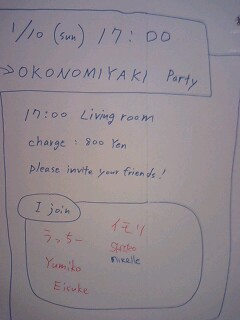 1/10 (sun) 17:00
→OKONOMIYAKI Party
17:00 Living room
charge : 800 Yen
please invite your friends!
I join
うっちー
イモリ
Shoko
mirelle
Yumiko
Eisuke